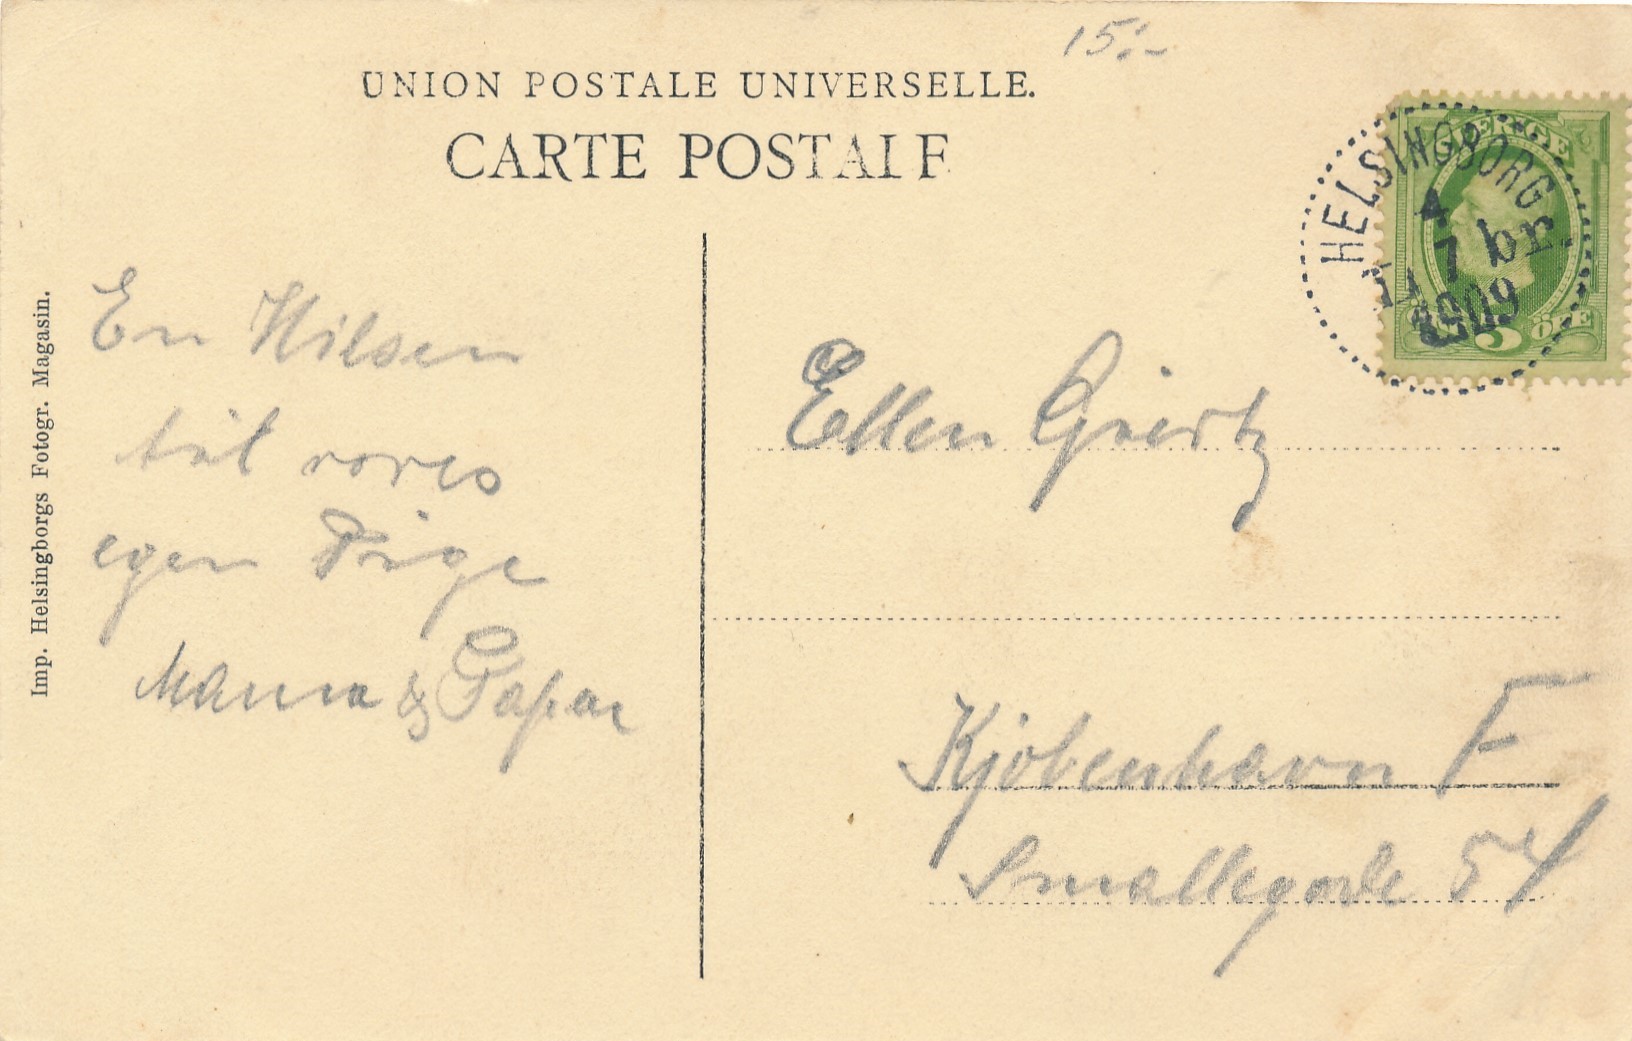 15:-
UNION POSTALE UNIVERSELLE.
CARTE POSTALE
SVERIGE
HELSINGBORG
4
7 br.
1909
5 ÖRE
Imp. Helsingborgs Fotogr. Magasin.
En Hilsen
til vores
egen Pige
Mama & Papa
Ellen
Kjöbenhavn F
Smallegade 54